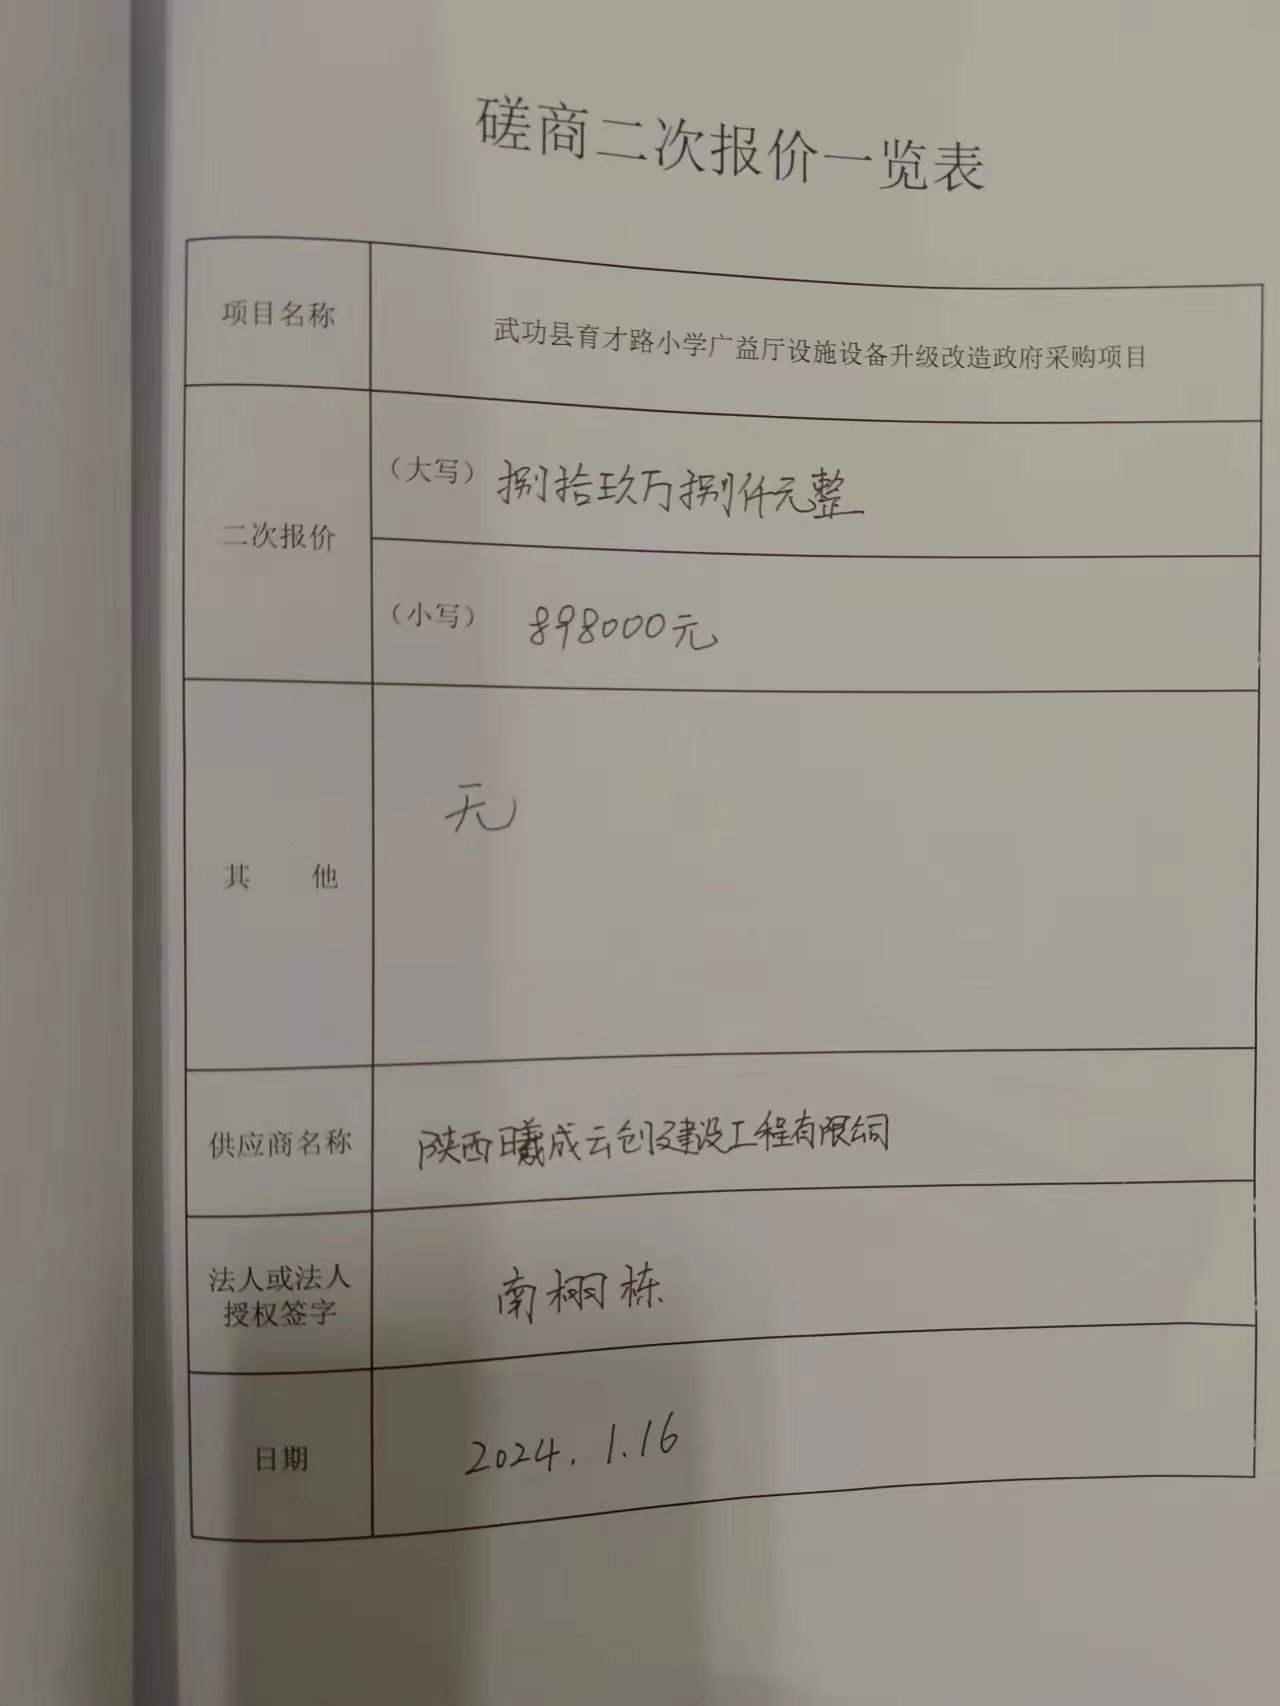 磋商二次报价一览表
项目名称
武功县育才路小学广益厅设施设备升级改造政府采购项目
二次报价
（大写）捌拾玖万捌仟元整
（小写） 898000元
其 他
无
供应商名称
陕西曦成云创建设工程有限公司
法人或法人
授权签字
南栩栋
日期
2024.1.16